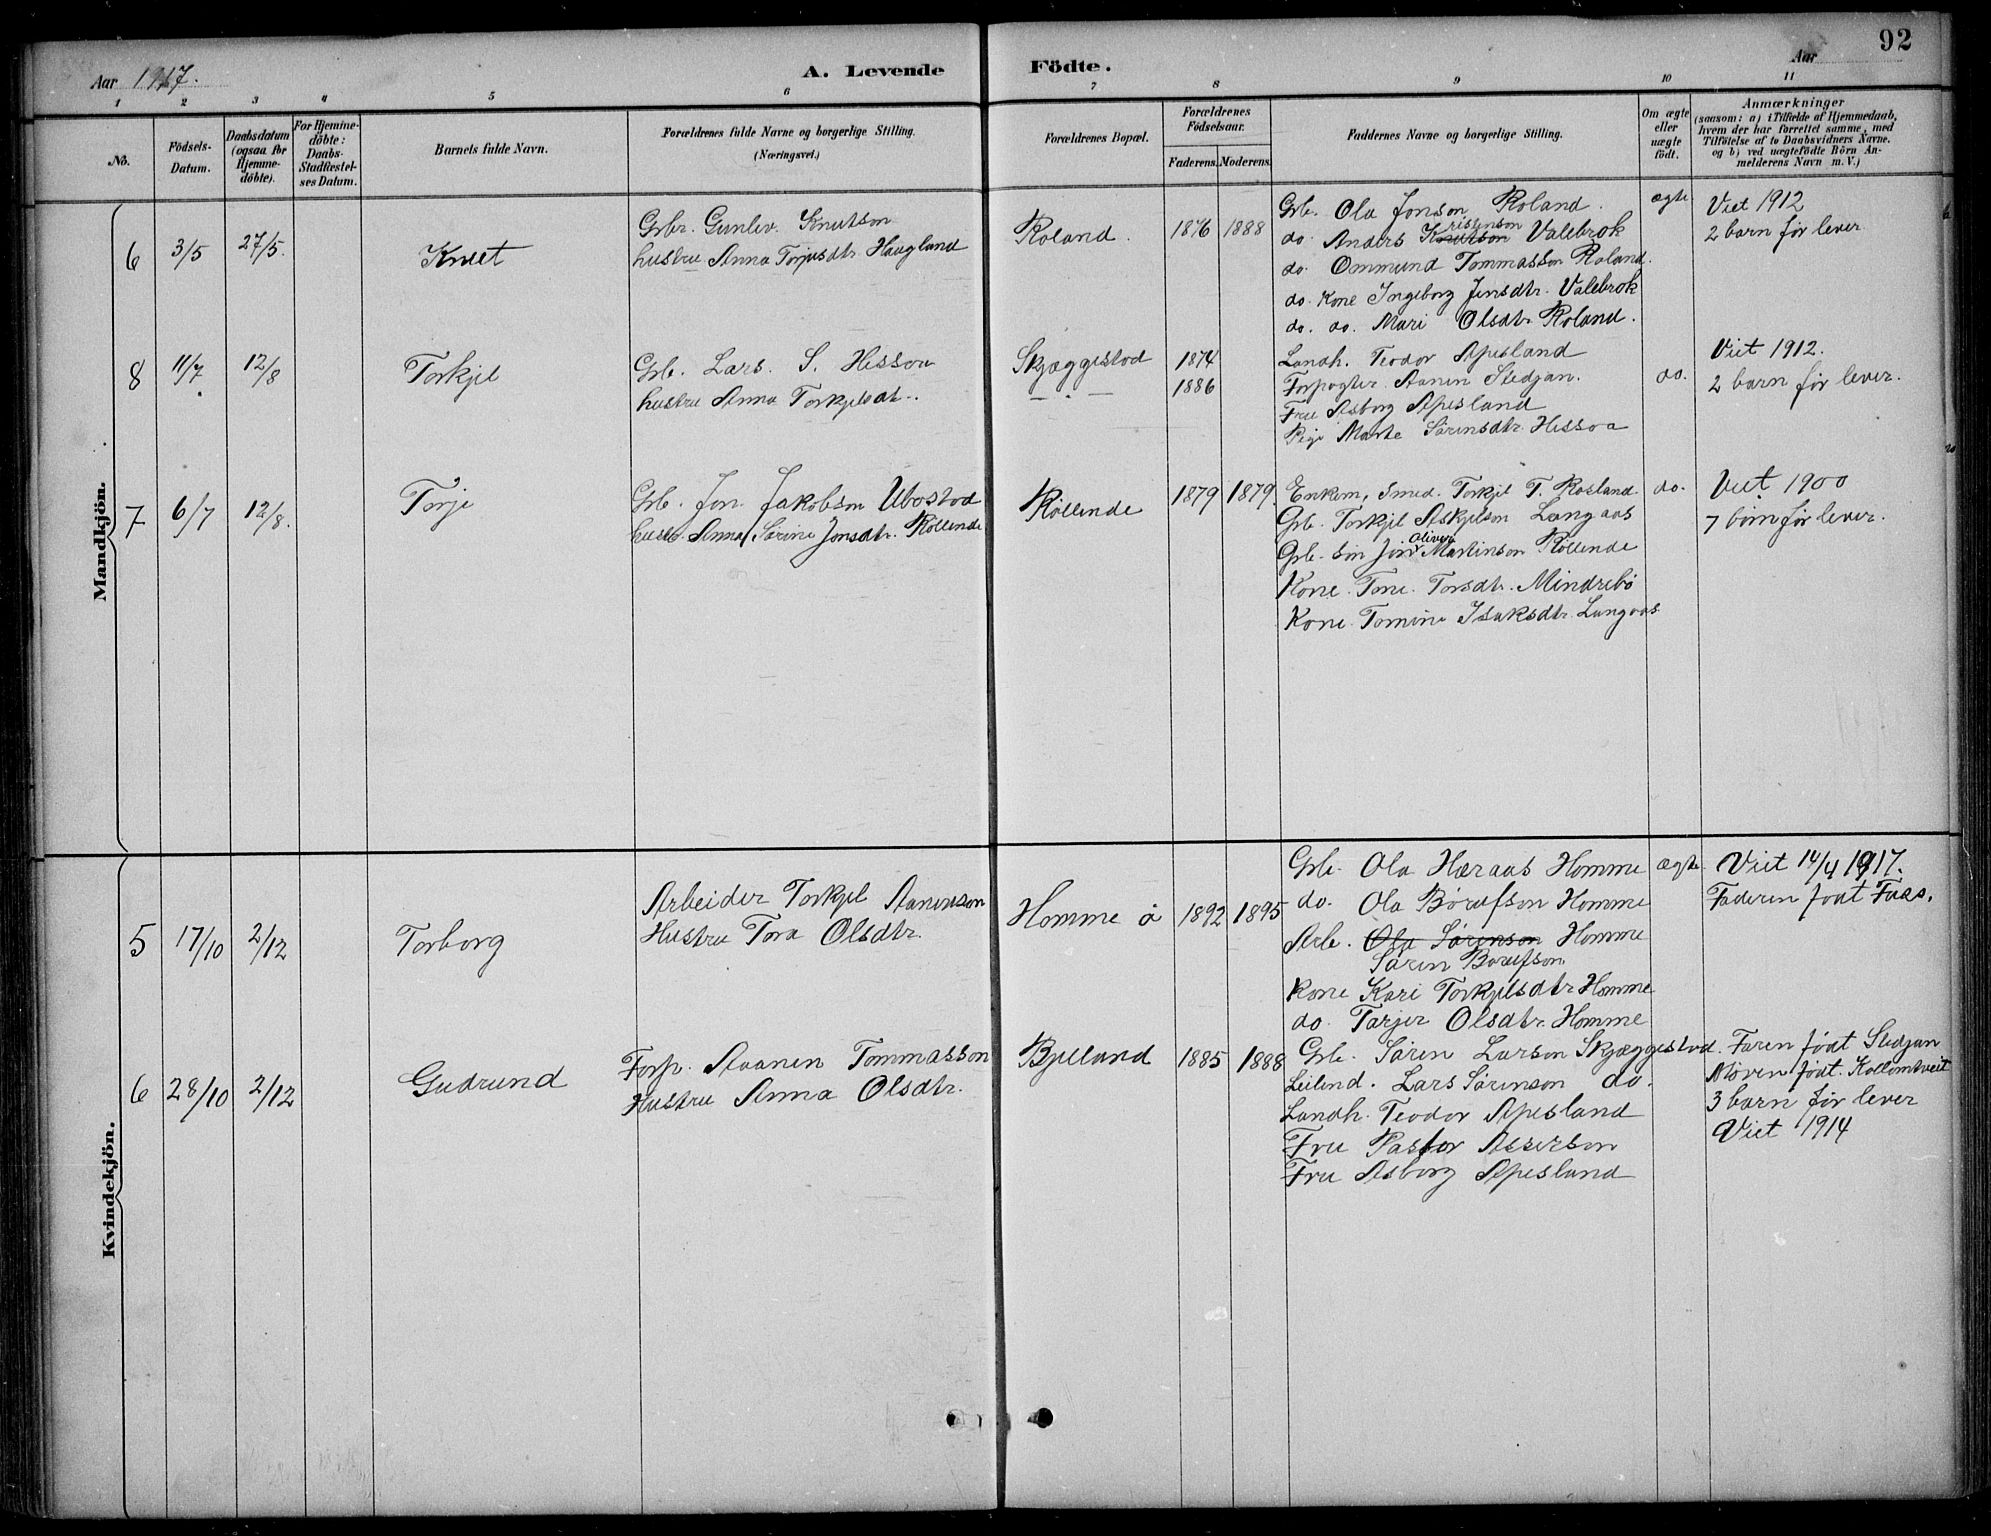 92
Aar 1917.
A. Levende Födte.
Aar
1 2 3 4 5 6 7 8 9 10 11
No.
Födsels-
Datum.
Daabsdatum
(ogsaa for
Hjemme-
döbte).
For Hjemme-
döbte:
Daabs-
Stadfæstel-
ses Datum.
Barnets fulde Navn.
Forældrenes fulde Navne og borgerlige Stilling.
(Næringsvei.)
Forældrenes Bopæl.
Forældrenes
Födselsaar.
Faderens. Moderens.
Faddernes Navne og borgerlige Stilling.
Om ægte
eller
uægte
födt.
Anmærkninger
(saasom: a) i Tilfælde af Hjemmedaab,
hvem der har forrettet samme, med
Tilföielse af to Daabsvidners Navne.
og b) ved uægtefödte Börn An-
melderens Navn m. V.)
Mandkjön.
6 3/5 27/5. Knut
Gbr. Gunlev Knutson
hustru Anna Torjusdtr. Haagland
Roland. 1876 1888
Grb. Ola Jonson Roland.
ristenson
do. Anders Knutson Valebrok
do. Ommund Tommasson Roland.
do. Kone Ingeborg Jensdtr. Valebrok
do. do. Mari Olsdtr. Roland.
ægte
Viet 1912
2 barn før lever
8 11/7 12/8 Torkjel
Grb. Lars. S. Hessoa
hustru Anna Torkjelsdt..
Skjæggestod 1874
— " — 1886
Landh. Teodor Apesland
Forpagter Aanen Stedjan.
Frue Asborg Apesland
Pige Marte Sörensdtr. Hessoa
do.
Viet 1912.
2 barn før lever.
7 6/7 12/8. Torje
Grb. Jon Jakobson Ubostod
hust. Anna Sörine Jonsdtr. Röllende
Röllende 1879 1879
Enkem, Smed. Torkjel T. Rosland.
Grb. Torkjel Askjelson Langaas
Oliver
Grb. sön Jon Martinson Röllende
Kone. Tone. Torsdtr. Mindrebö
Kone. Tomine Isaksdtr. Langaas
do.
Viet 1900
7 börn før lever.
Kvindekjön.
5 17/10 2/12 Torborg
Arbeider Torkjel Aanenson
Hustru Tora Olsdtr.
Homme ö 1892 1895
Grb. Ola Hæraas Homme
do. Ola Börufson Homme
Arb. Ola Sörenson Homme
Sören Borufson
Kone Kari Torkjelsdtr Homme
do. Tarjer Olsdtr. Homme
ægte
Viet 14/4 1917.
Faderen födt Faas.
6 28/10 2/12 Gudrund
Forp. Aanen Tommasson
Hustru Anna Olsdtr.
Bjelland 1885 1888
Grb. Sören Larson Skjæggestod.
Leilend. Lars Sörenson do.
Landh. Teodor Apesland
Fru Pastor Asserson
Fru Asborg Apesland
Faren födt Stedjan
Moren födt. Kollomtveit
3 barn før lever
Viet 1914